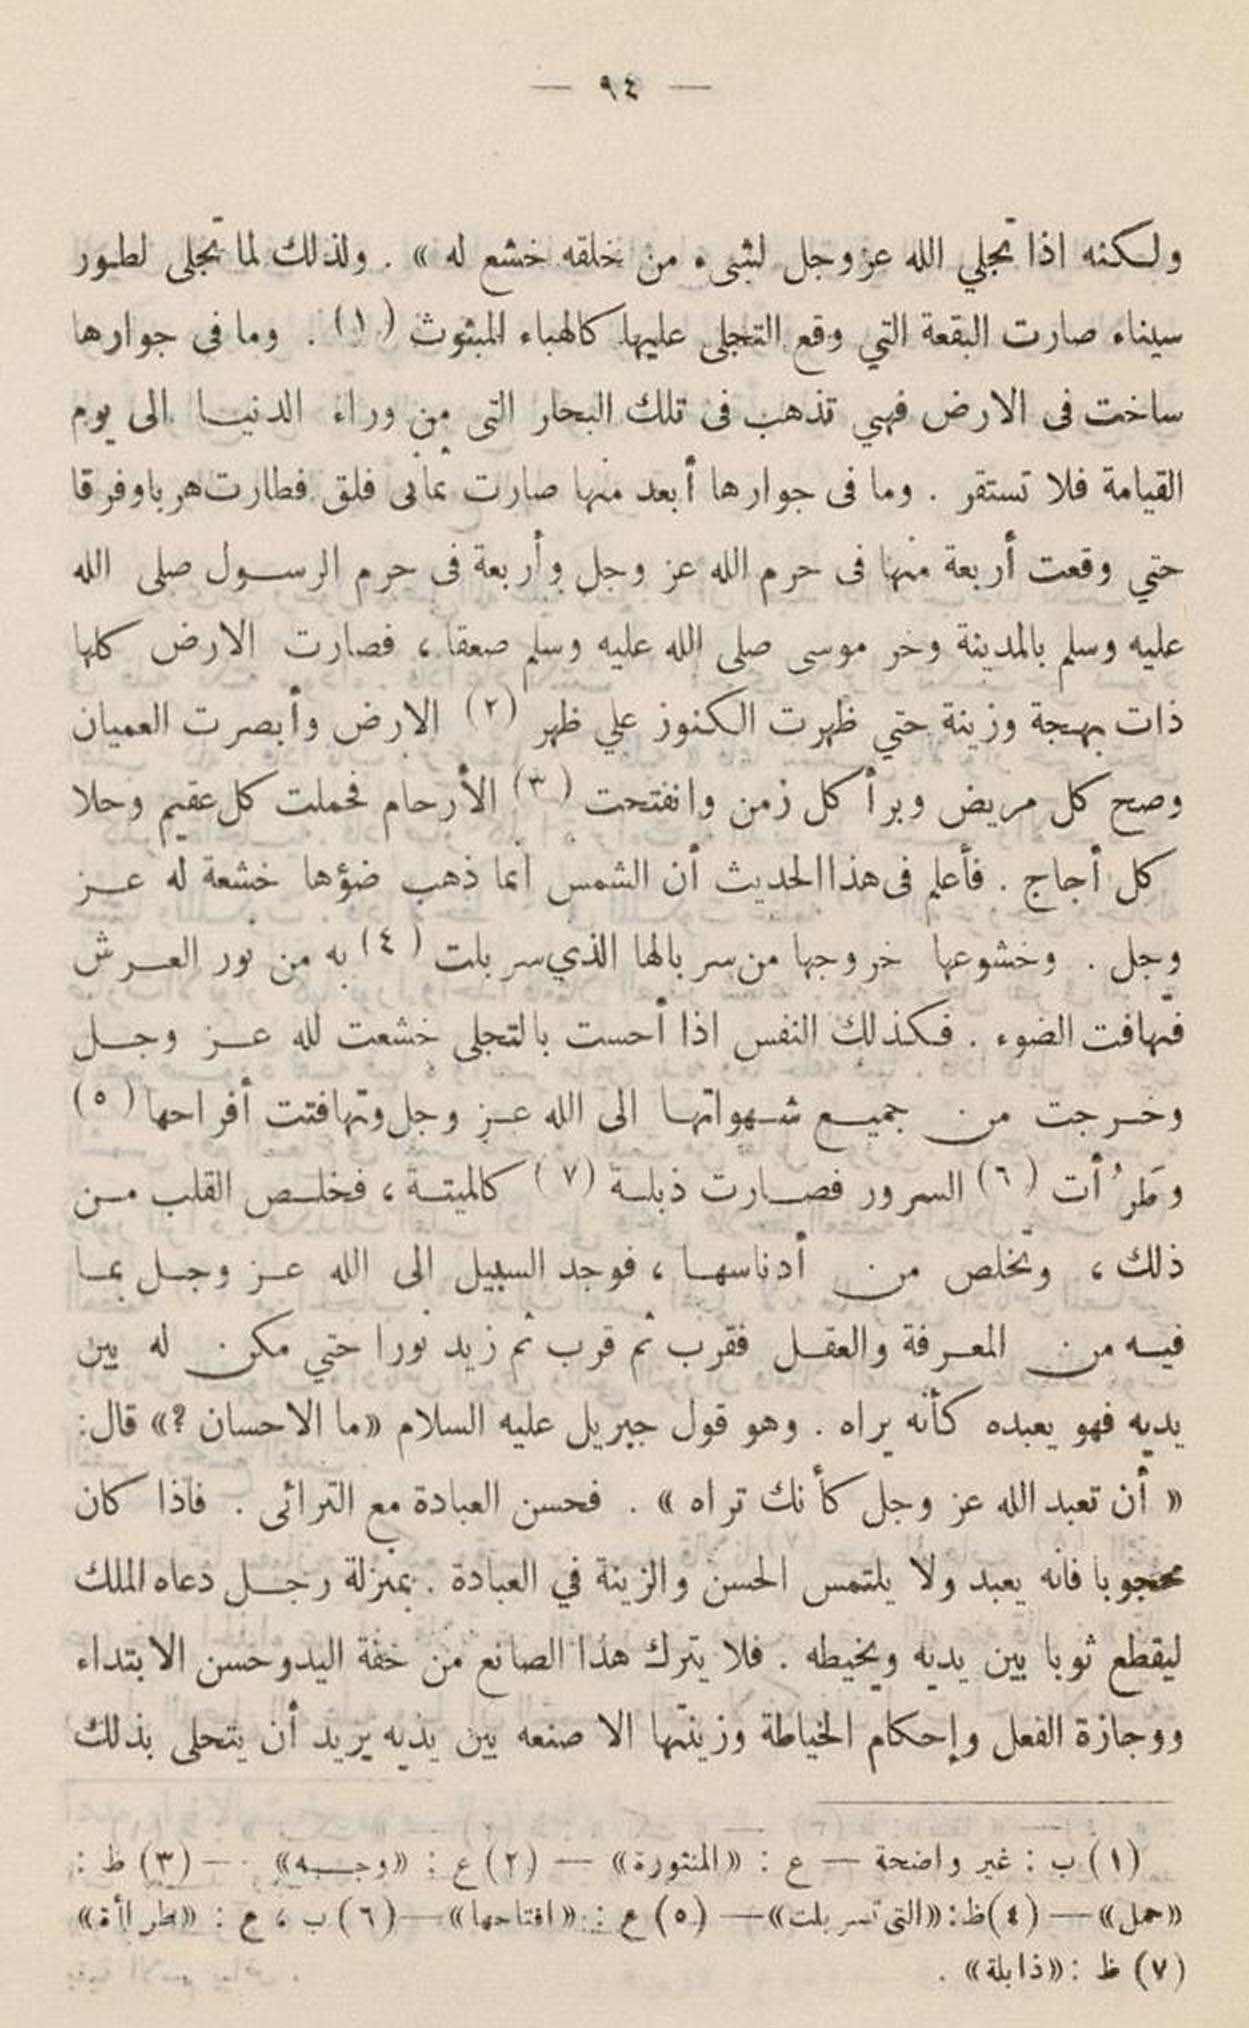 — ٩٤ —
ولكنه اذا تجلي الله عز وجل لشيء من خلقه خشع له » . ولذلك لما تجلى لطور
سيناء صارت البقعة التي وقع التجلى عليها كالهباء المبثوث (١) . وما فى جوارها
ساخت فى الارض فهي تذهب فى تلك البحار التى من وراء الدنيا الى يوم
القيامة فلا تستقر . وما فى جوارها أبعد منها صارت ثمانى فلق فطارت هربا وفرقا
حتي وقعت أربعة منها فى حرم الله عز وجل وأربعة فى حرم الرسول صلى الله
عليه وسلم بالمدينة وخر موسى صلى الله عليه وسلم صعقا ، فصارت الارض كلها
ذات بهجة وزينة حتي ظهرت الكنوز علي ظهر (٢) الارض وأبصرت العميان
وصح كل مريض وبرأ كل زمن وانفتحت (٣) الأرحام فحملت كل عقيم وحلا
كل أجاج . فأعلم فى هذا الحديث أن الشمس انما ذهب ضؤها خشعة له عز
وجل . وخشوعها خروجها من سربالها الذي سربلت (٤) به من نور العرش
فتهافت الضوء . فكذلك النفس اذا أحست بالتجلى خشعت لله عز وجل
وخرجت من جميع شهواتها الى الله عز وجل وتهافتت أفراحها (٥)
وطَرُأت (٦) السرور فصارت ذبلة (٧) كالميتة ، فخلص القلب من
ذلك ، وتخلص من أدناسها ، فوجد السبيل الى الله عز وجل بما
فيه من المعرفة والعقل فقرب ثم قرب ثم زيد نورا حتي مكن له بين
يديه فهو يعبده كأنه يراه . وهو قول جبريل عليه السلام «ما الاحسان ؟» قال:
« أن تعبد الله عز وجل كأنك تراه » . فحسن العبادة مع الترائى . فاذا كان
محجوبا فانه يعبد ولا يلتمس الحسن والزينة في العبادة . بمنزلة رجل دعاه الملك
ليقطع ثوبا بين يديه ويخيطه . فلا يترك هذا الصانع من خفة اليد وحسن الابتداء
ووجازة الفعل وإحكام الخياطة وزينتها الا صنعه بين يديه يريد أن يتحلى بذلك
(١) ب : غير واضحة — ع : «المنثورة» — (٢) ع : «وجه» — (٣) ظ :
«حمل» — (٤) ظ: «التى تسربلت» — (٥) ع : «افتاحها» — (٦) ب ، ع : «طرأة»
(٧) ظ : «ذابلة» .